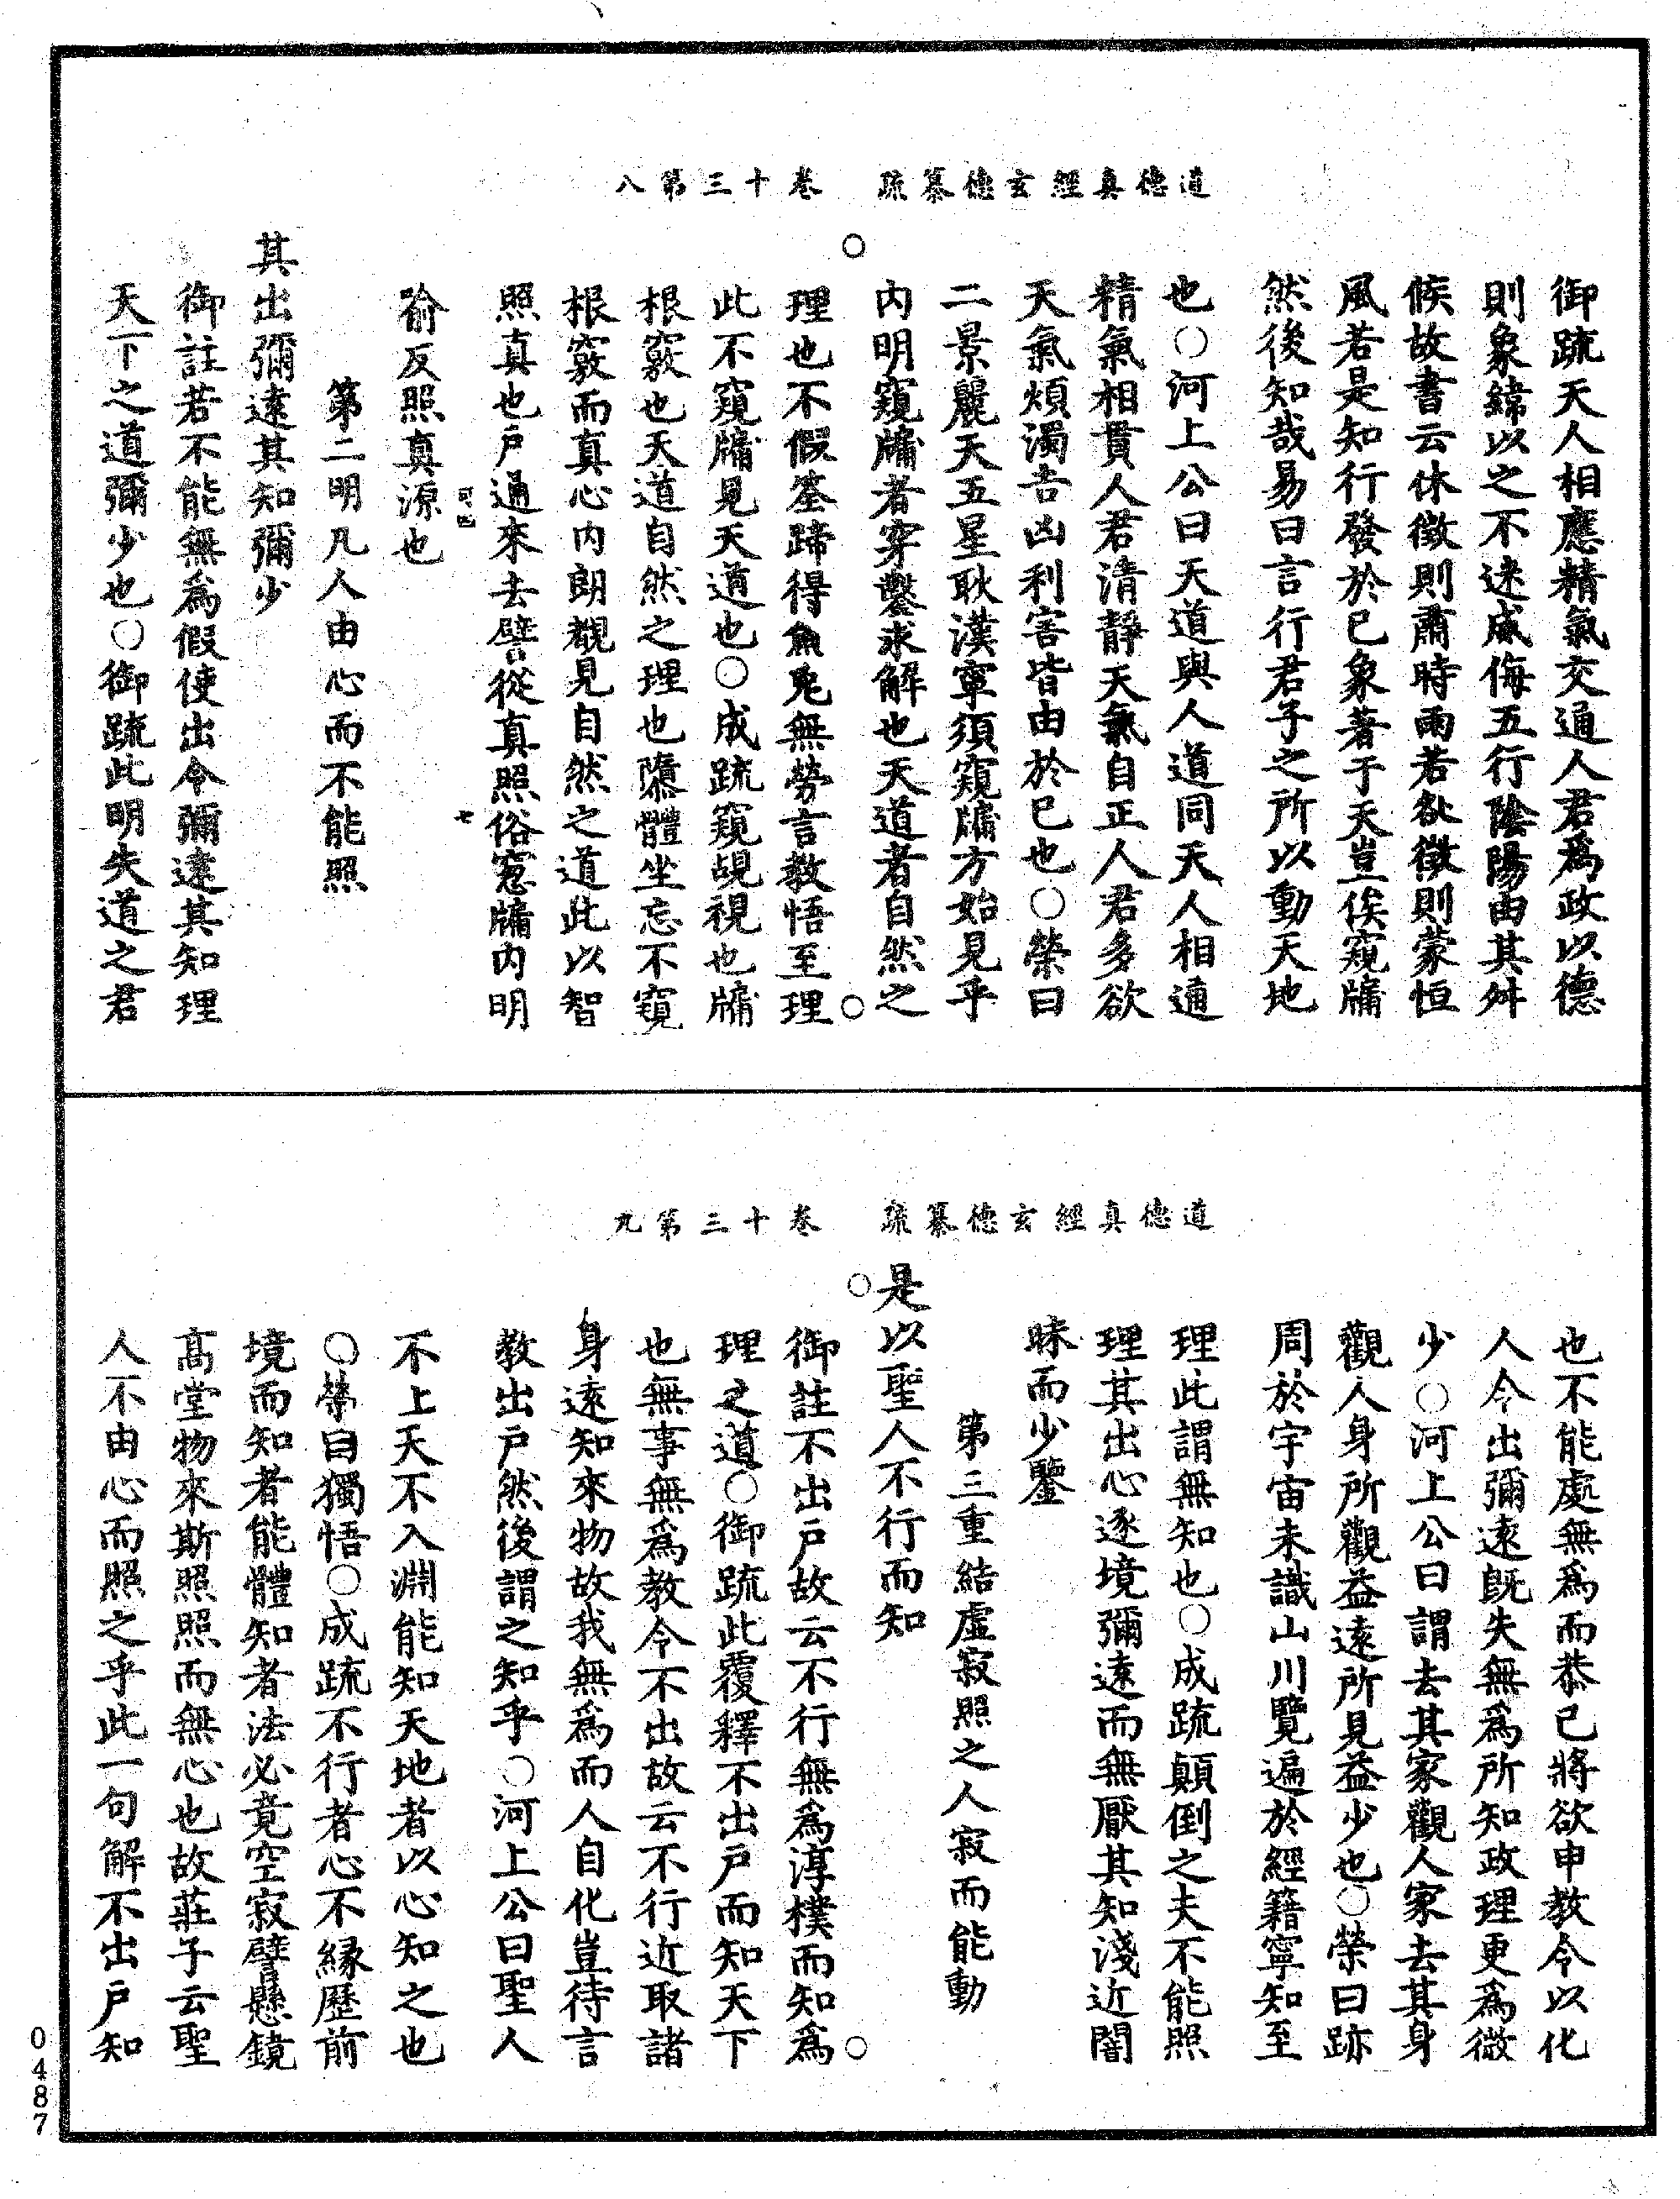 道德真經玄德纂疏　卷十三第八
御疏天人相應精氣交通人君為政以德
則象緯以之不迷威侮五行陰陽由其舛
候故書云休徵則肅時雨若咎徵則蒙恒
風若是知行發於己象著于天豈俟窺牖
然後知哉易曰言行君子之所以動天地
也○河上公曰天道與人道同天人相通
精氣相貫人君清靜天氣自正人君多欲
天氣煩濁吉凶利害皆由於己也○榮曰
二景麗天五星耿漢寧須窺牖方始見乎
內明窺牖者穿鑿求解也天道者自然之
理也不假筌蹄得魚兎無勞言教悟至理
此不窺牖見天道也○成疏窺覘視也牖
根竅也天道自然之理也隳體坐忘不窺
根竅而真心内朗覩見自然之道此以智
照真也戶通來去譬從真照俗窓牖內明
可 七
喻反照真源也
第二明凡人由心而不能照
其出彌遠其知彌少
御註若不能無為假使出令彌遠其知理
天下之道彌少也○御疏此明失道之君
道德真經玄德纂疏　卷十三第九
也不能處無為而恭己將欲申教令以化
人令出彌遠既失無為所知政理更為微
少○河上公曰謂去其家觀人家去其身
觀人身所觀益遠所見益少也○榮曰跡
周於宇宙未識山川覽遍於經籍寧知至
理此謂無知也○成疏顛倒之夫不能照
理其出心逐境彌遠而無厭其知淺近闇
昧而少鑒
第三重結虛寂照之人寂而能動
是以聖人不行而知
御註不出戶故云不行無為淳樸而知為
理之道○御疏此覆釋不出戶而知天下
也無事無為教令不出故云不行近取諸
身遠知來物故我無為而人自化豈待言
教出戶然後謂之知乎○河上公曰聖人
不上天不入淵能知天地者以心知之也
○榮曰獨悟○成疏不行者心不緣歷前
境而知者能體知者法必竟空寂譬懸鏡
高堂物來斯照照而無心也故莊子云聖
人不由心而照之乎此一句解不出戶知
0487